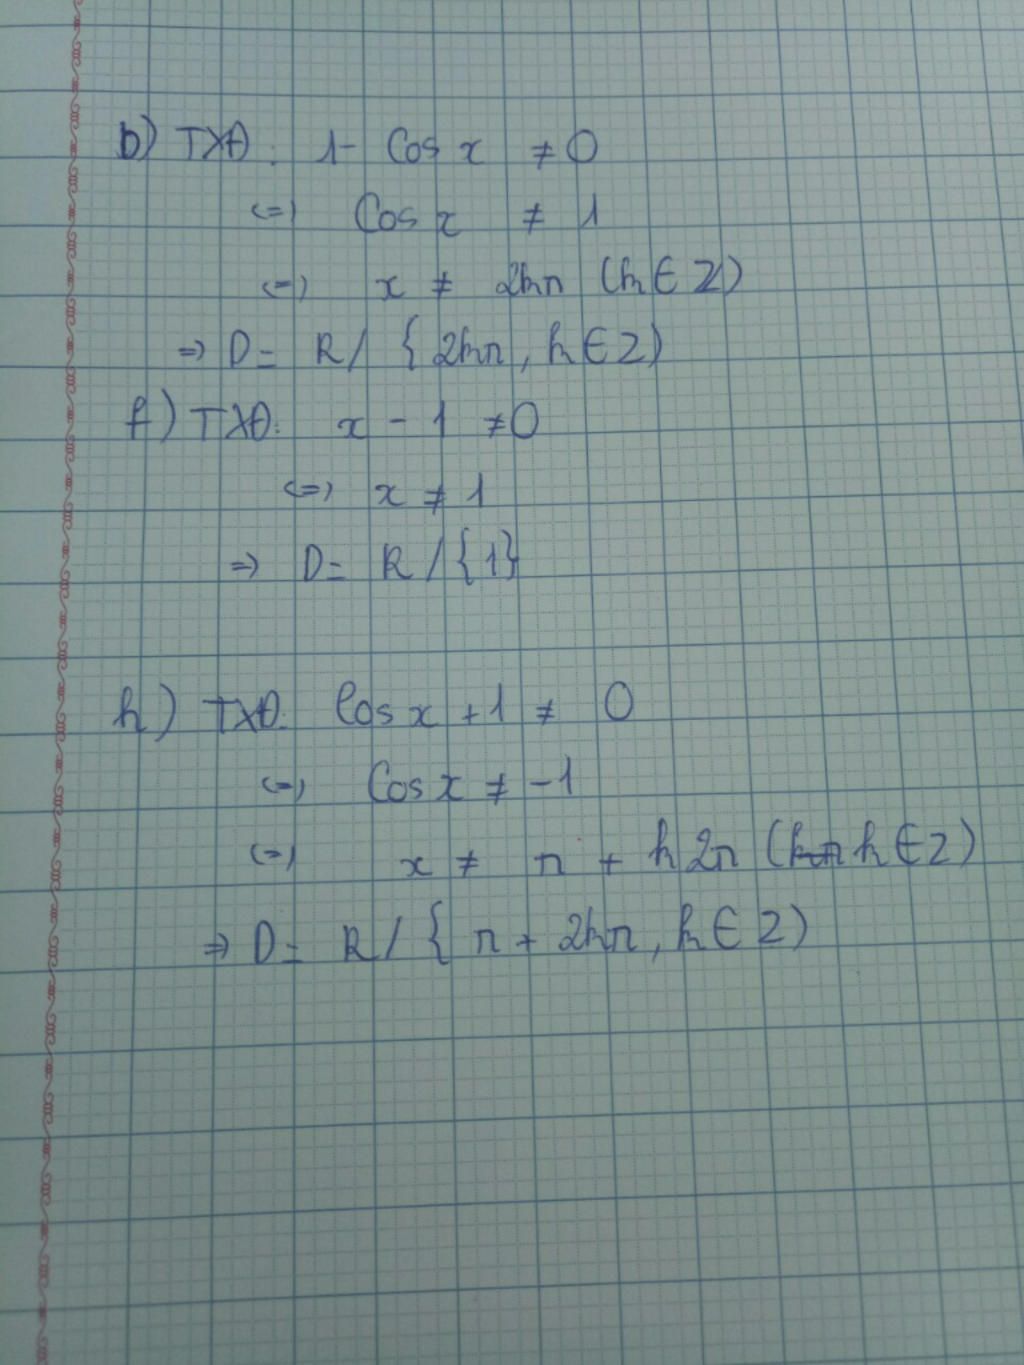 b) TXĐ: 1- Cos x ≠ 0
<=> Cos x ≠ 1
<=> x ≠ 2kπ (k ∈ Z)
=> D = R / { 2kπ, k ∈ Z)
f) TXĐ: x - 1 ≠ 0
<=> x ≠ 1
=> D = R / {1}
h) TXĐ: Cos x + 1 ≠ 0
<=> Cos x ≠ -1
<=> x ≠ π + k2π (k ∈ Z)
=> D = R / { π + 2kπ, k ∈ Z)